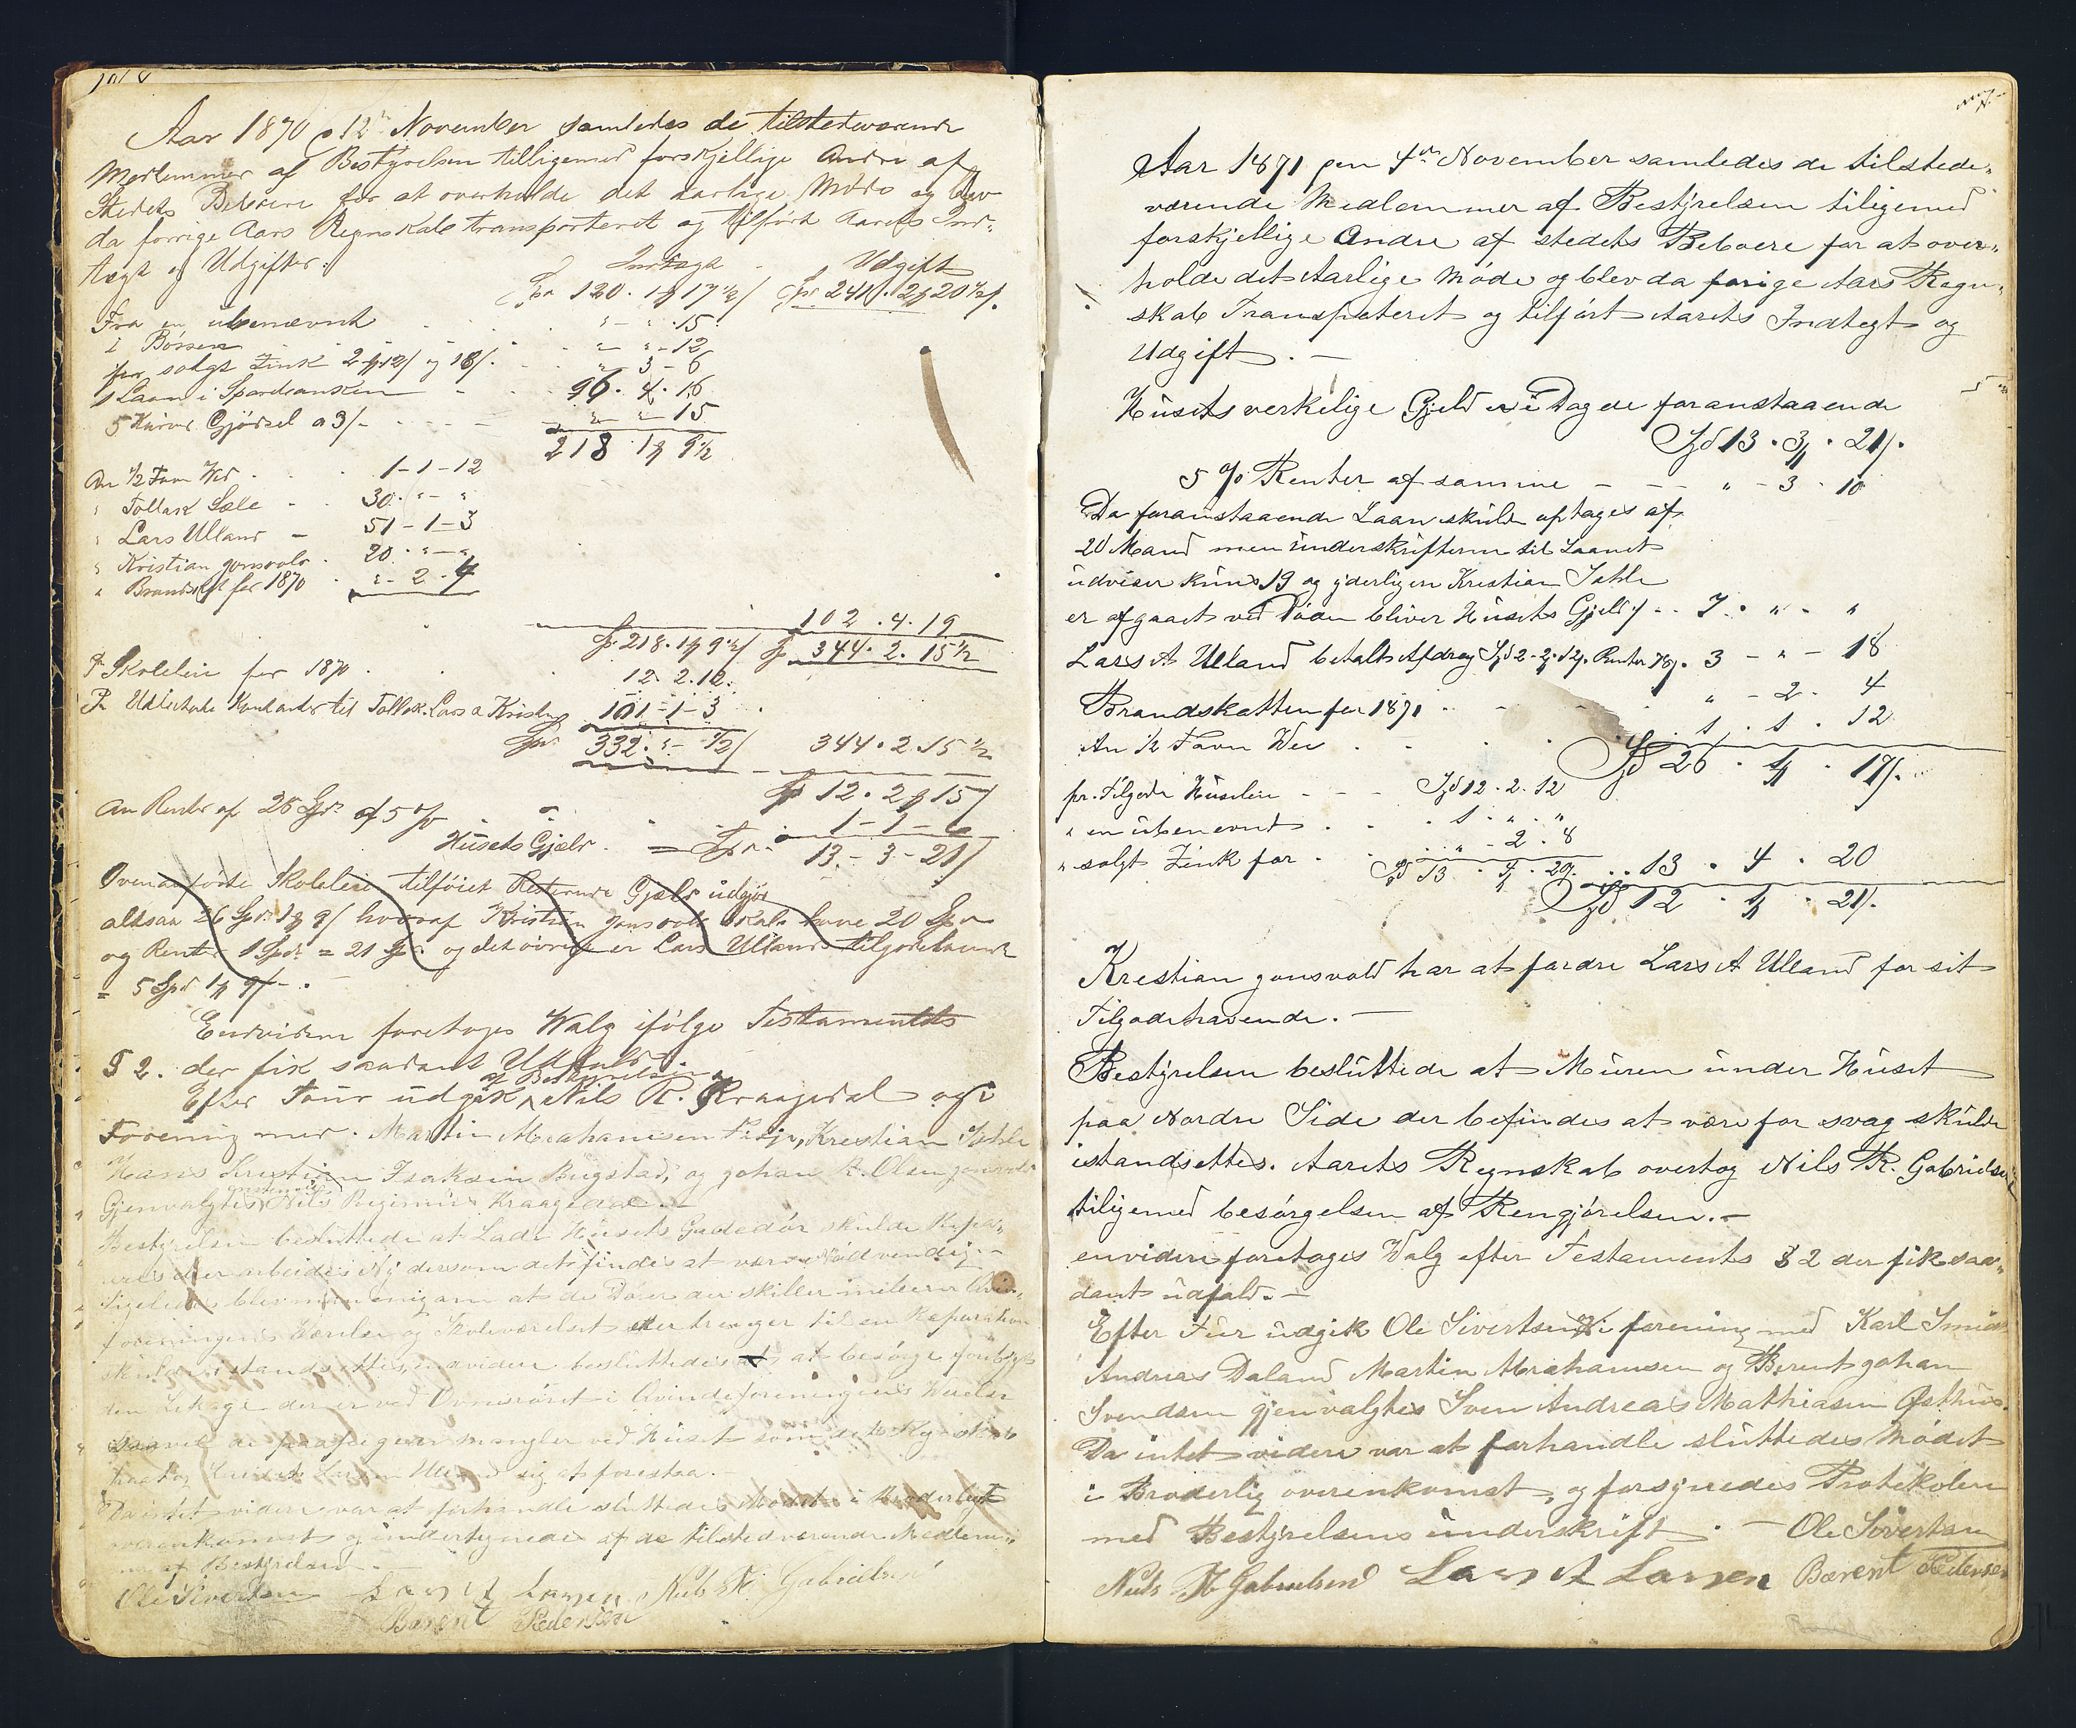 Aar 1870 12te November samledes de tilstedeværende
Medlemmer af Bestyrelsen tilligemed forskjellige Andre af
Stedets Beboere for at overholde det aarlige Møde og blev
da forrige Aars Regnskab transporteret og tilført Aarets Ind-
tægt og Udgifter.
Indtægt Udgift
Spd 120. 1 17 1/2 Spd 241. 2 20 1/2
Fra en ubenævnt " - " . 15
i Bøssen " - " - 12
for solgt Zink " 3 - 6
Laan i Sparebanken 96. 4. 16
5 Kurve Gjødsel a 3/- " - " - 15
218. 1 9 1/2
An 1/2 Favn Ved 1-1-12
" Tollak Sæle 30. " - "
" Lars Ulland 51-1-3
" Kristian Jonsvold 20. " - "
" Brandskat for 1870 " - 2. 4
102. 4. 19
Spd 218. 1 9 1/2 Spd 344. 2. 15 1/2
Pr Skoleleie for 1870 12. 2. 12
Pr til Tollak, Lars & Kristian 101-1-3
Spd 332. " - 1/2 344. 2. 15 1/2
Spd 12. 2 15
An Renter af 25 Spd af 5 o/o 1-1-6
Husets Gjæld = Spd 13-3-21
Ovenanførte Skoleleie tilføiet Resterende Gjæld udgjør
altsaa 26 Spd 1 9/ hvoraf Kristian Jonsvold skal have 20 Spd
og Renter 1 Spd = 21 Spd og det øvrige er Lars Ullands tilgodehavende
= 5 Spd 1 9/-
Endvidere foretoges Valg ifølge Testamentets
§ 2. der fik saadant Udfald.
af Bestyrelsen
Efter Tour udgik Nils R. Kraagedal og i
Forening med Martin Abrahamsen Krestian Sæhle
Hans Kristian Isaksen Bugstad, og Johan R. Olsen Jonsvold
Gjenvalgtes Nils Reginius Kraagedal.
Bestyrelsen besluttede at Lade Husets Gadedør skulde Repa-
reres eller arbeides Ny dersom det findes at være Nødvendig.
blev man enig om at de Døre der skiller imellem Qvin-
foreningens Værelse og Skoleværelset der trænger til en Reparation
skulde istandsættes, endvidere besluttedes at besørge
den Lekage der er ved Ovnsrøret i Qvindeforeningens Værelse
mangler ved Huset som
Lars Ulland sig at forestaa.
Da intet videre var at forhandle sluttedes Mødet i Broderligt
overenskomst og undertegnede af de tilstedværende Medlem-
mer af Bestyrelsen.
Ole Sivertsen Lars A Larsen Nils R. Gabrielsen
Bærent Pedersen
Aar 1871 den 4de November samledes de tilstede-
værende Medlemmer af Bestyrelsen tiligemed
forskjellige Andre af stedets Beboere for at over-
holde det Aarlige Møde og blev da forige Aars Regn-
skab Transpoteret og tilført Aarets Indtegt og
Udgift. -
Husets verkelige Gjeld er i Dag de foranstaaende
Spd 13. 3. 21/.
5 o/o Renter af samme - - - " - 3. 10
Da foranstaaende Laan skulde optages af
20 Mand men underskrifterne til Laanet
udviser kuns 19 og yderligere Krestian Sæhle
er afgaaet ved Døden bliver Husets Gjeld 7. " . "
Lars A Ulland betalt Afdrag Spd 2-2-12. Renter 78/. 3 - " - 18
Brandskatten for 1871 " - 2. 4
An 1/2 Favn Ved 1. 1. 12
Spd 26. 4. 17/.
pr. Tilgode Husleie - - - Spd 12. 2. 12
" en ubenevnt 1. " . "
" solgt Zink for " - 2. 8
Spd 13. 4. 20. 13. 4. 20
Spd 12. 4. 21/.
Krestian Jonsvold har at fordre Lars A Ulland for sit
Tilgodehavende. -
Bestyrelsen besluttede at Muren under Huset
paa Nordre Side der befindes at være for svag skulde
istandsettes. Aarets Regnskab overtog Nils R. Gabrielsen
tiligemed besørgelsen af Rengjørelsen. -
envidere foretoges Valg efter Testaments § 2 der fik saa-
dant udfald. -
Efter Tur udgik Ole Sivertsen i forening med Karl Smid
Andreas Daland Martin Abrahamsen og Berent Johan
Svendsen gjenvalgtes Sven Andreas Mathiasen Østhus.
Da intet videre var at forhandle sluttedes Mødet
i Broderlig overenkomst, og forsynedes Protokolen
med Bestyrelsens underskrift. - Ole Sivertsen
Nils R Gabrielsen Lars A Larsen Bærent Pedersen